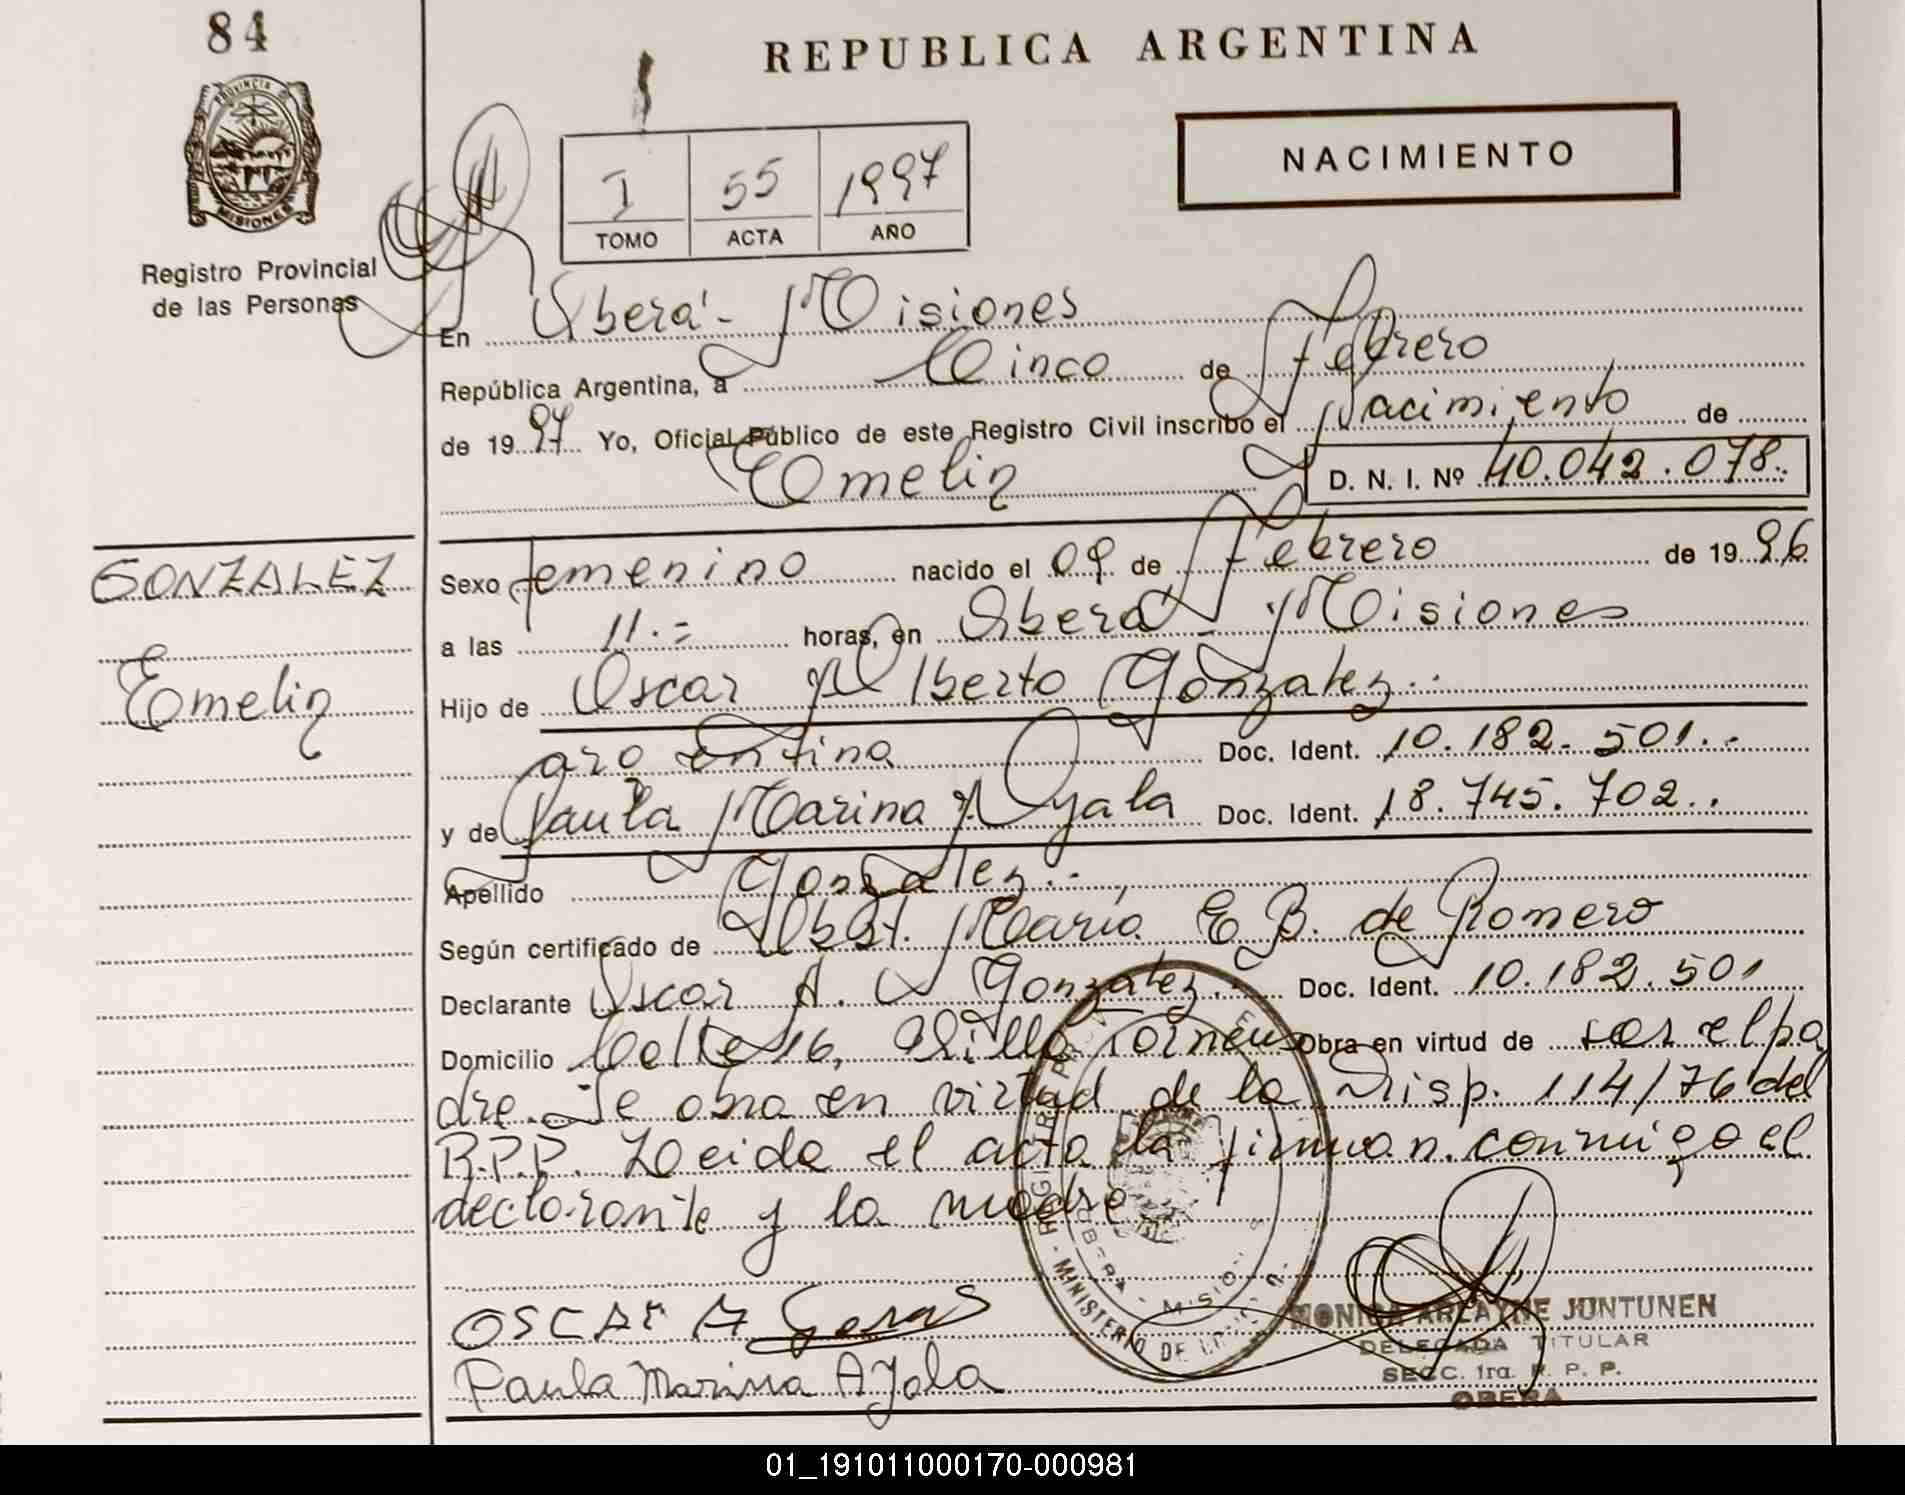 84
REPUBLICA ARGENTINA
PROVINCIA DE
MISIONES
Registro Provincial
de las Personas
I 55 1997
TOMO ACTA AÑO
NACIMIENTO
En Oberá - Misiones
República Argentina, a Cinco de Febrero
de 19 97 Yo, Oficial Público de este Registro Civil inscribo el Nacimiento de
Emelin D. N. I. Nº 40.042.078.
GONZALEZ
Emelin
Sexo femenino nacido el 09 de Febrero de 19 96
a las 11.= horas, en Oberá - Misiones
Hijo de Oscar Alberto Gonzalez..
argentina Doc. Ident. 10.182.501..
y de Paula Marina Ayala Doc. Ident. 18.745.702..
Apellido Gonzalez..
Según certificado de Obst. María E. B. de Romero
Declarante Oscar A. Gonzalez.. Doc. Ident. 10.182.501
Domicilio Calle 16, Villa Obra en virtud de ser el pa
dre. Se obra en virtud de la Disp. 114/76 del
R.P.P. Leida el acta la firman conmigo el
declarante y la madre
OSCAR A
Paula Marina Ayala
MINISTERIO DE
OBERA - MISIONES
MONICA ARLAYNE JUNTUNEN
DELEGADA TITULAR
SECC. 1ra. R. P. P.
OBERA
01_191011000170-000981